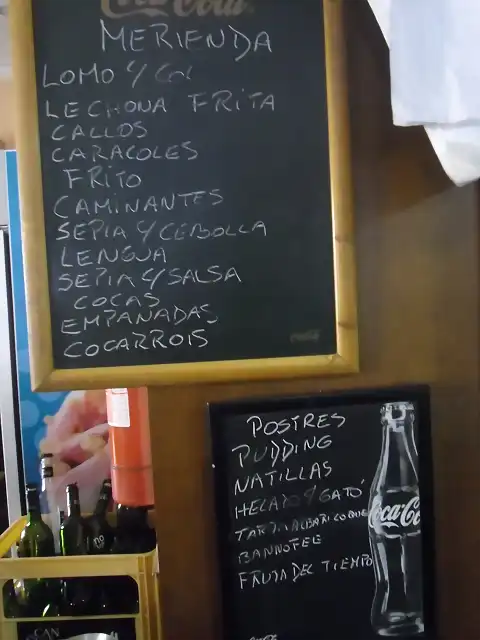 Coca-Cola
MERIENDA
LOMO Y Col
LECHONA FRITA
CALLOS
CARACOLES
FRITO
CAMINANTES
SEPIA Y CEBOLLA
LENGUA
SEPIA Y SALSA
COCAS
EMPANADAS
COCARROIS
POSTRES
PUDDING
NATILLAS
HELADO Y GATÓ
TARTA ALBARICOQUE
BANNOFEE
FRUTA DEL TIEMPO
Coca-Co